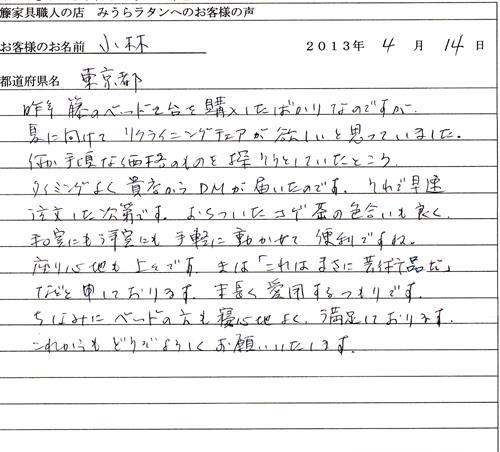 籐家具職人の店 みうらラタンへのお客様の声
お客様のお名前 小林 2013年 4 月 14 日
都道府県名 東京都
昨年 籐のベッド2台を購入したばかりなのですが、
夏に向けて リクライニングチェアが欲しいと思っていました。
何か手頃な価格のものを探そうとしていたところ、
タイミングよく貴店からDMが届いたのです。それで早速
注文した次第です。おちついたコゲ茶の色合いも良く、
和室にも洋室にも手軽に動かせて便利ですね。
座り心地も上々です。夫は「これはまさに芸術品だ」
などと申しております。末長く愛用するつもりです。
ちなみにベッドの方も寝心地よく、満足しております。
これからもどうぞよろしくお願いいたします。